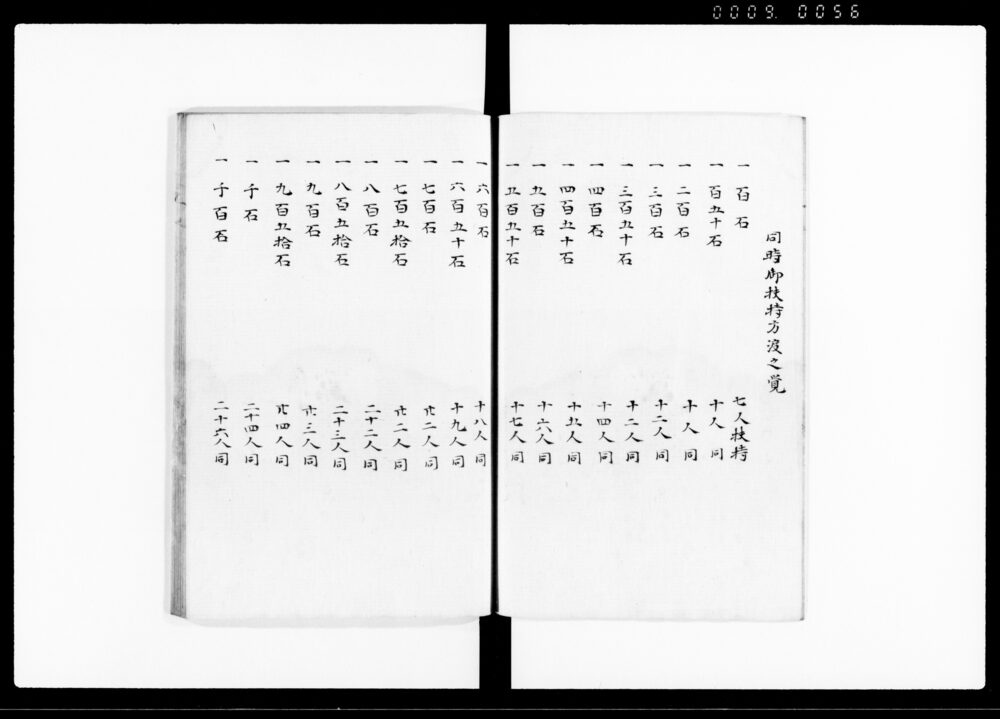 0009. 0056
同時御扶持方渡之覚
一 百石 七人扶持
一 百五十石 十人同
一 二百石 十人同
一 三百石 十二人同
一 三百五十石 十二人同
一 四百石 十四人同
一 四百五十石 十五人同
一 五百石 十六人同
一 五百五十石 十七人同
一 六百石 十八人同
一 六百五十石 十九人同
一 七百石 廿二人同
一 七百五拾石 廿二人同
一 八百石 二十二人同
一 八百五拾石 二十三人同
一 九百石 廿三人同
一 九百五拾石 廿四人同
一 千石 二十四人同
一 千百石 二十六人同